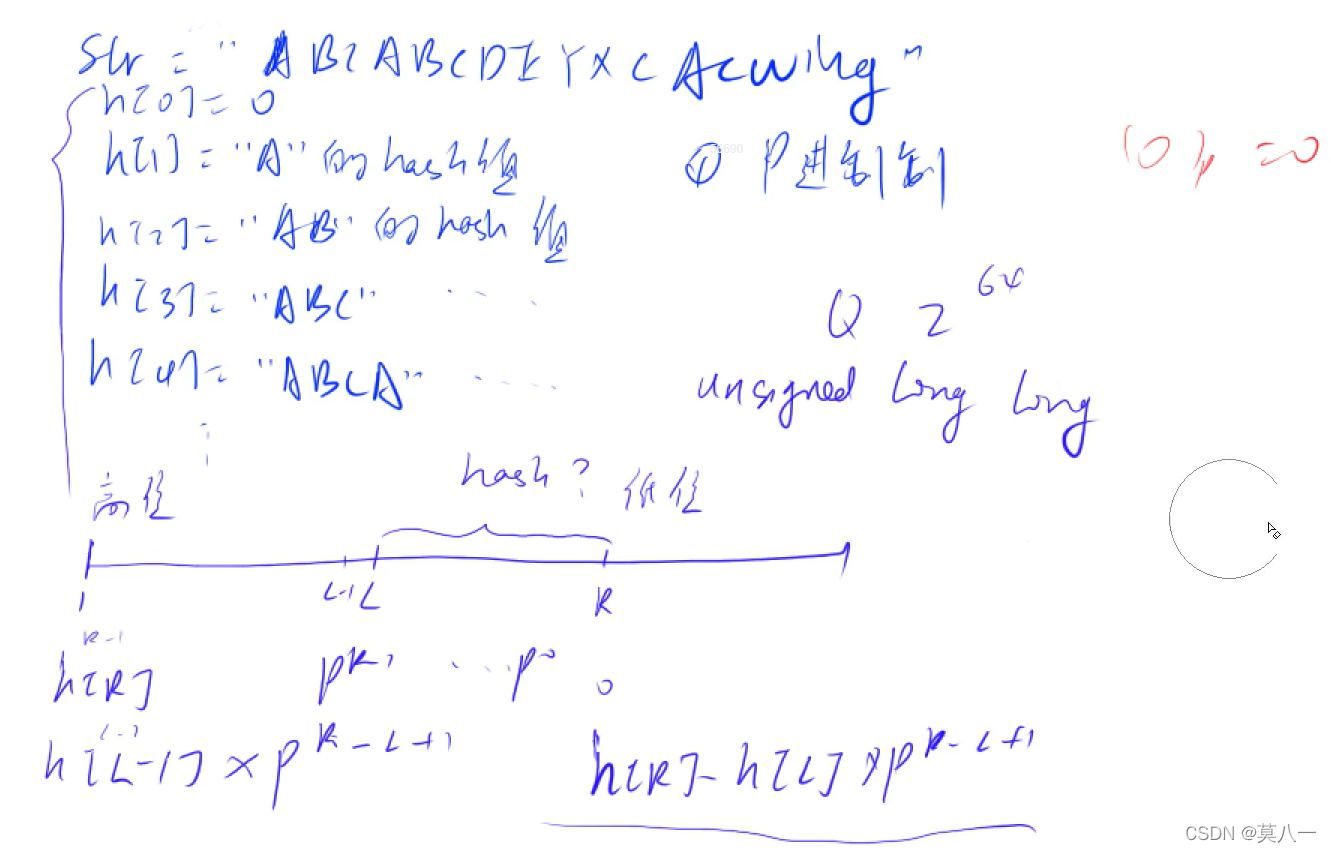 Str = "ABCABCDEYXCAcwing"
h[0] = 0
h[1] = "A" 的 hash 值
① P进制
(0)p = 0
h[2] = "AB" 的 hash 值
h[3] = "ABC" ....
Q 2^64
h[4] = "ABCA" ....
unsigned long long
⋮
高位 hash? 低位
1 L-1 L R
R-1
h[R] p^R-1 ... p^0 0
L-1
h[L-1] × p^R-L+1
h[R] - h[L] × p^R-L+1
CSDN @莫八一